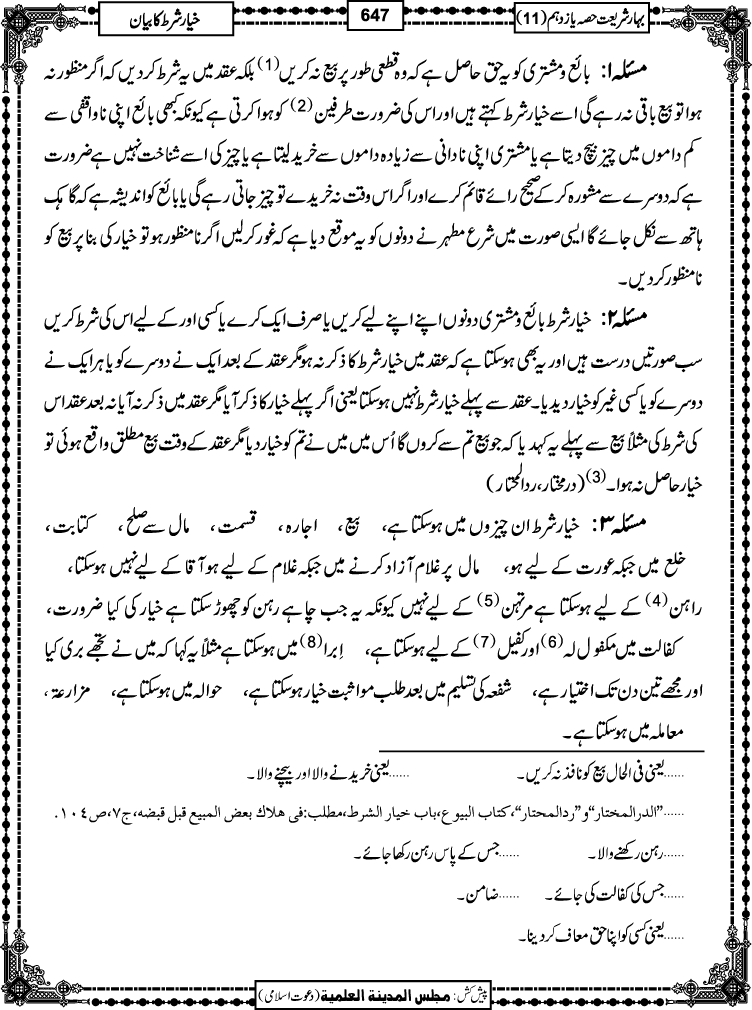 بہار شریعت حصہ یازدہم (11)
647
خیار شرط کا بیان
مسئلہ ۱: بائع و مشتری کو یہ حق حاصل ہے کہ وہ قطعی طور پر بیع نہ کریں (1) بلکہ عقد میں یہ شرط کر دیں کہ اگر منظور نہ
ہوا تو بیع باقی نہ رہے گی اسے خیار شرط کہتے ہیں اور اس کی ضرورت طرفین (2) کو ہوا کرتی ہے کیونکہ کبھی بائع اپنی ناواقفی سے
کم داموں میں چیز بیچ دیتا ہے یا مشتری اپنی نادانی سے زیادہ داموں سے خرید لیتا ہے یا چیز کی اسے شناخت نہیں ہے ضرورت
ہے کہ دوسرے سے مشورہ کر کے صحیح رائے قائم کرے اور اگر اس وقت نہ خریدے تو چیز جاتی رہے گی یا بائع کو اندیشہ ہے کہ گاہک
ہاتھ سے نکل جائے گا ایسی صورت میں شرع مطہر نے دونوں کو یہ موقع دیا ہے کہ غور کر لیں اگر نامنظور ہو تو خیار کی بنا پر بیع کو
نامنظور کر دیں۔
مسئلہ ۲: خیار شرط بائع و مشتری دونوں اپنے اپنے لیے کریں یا صرف ایک کرے یا کسی اور کے لیے اس کی شرط کریں
سب صورتیں درست ہیں اور یہ بھی ہوسکتا ہے کہ عقد میں خیار شرط کا ذکر نہ ہو مگر عقد کے بعد ایک نے دوسرے کو یا ہر ایک نے
دوسرے کو یا کسی غیر کو خیار دیدیا۔ عقد سے پہلے خیار شرط نہیں ہوسکتا یعنی اگر پہلے خیار کا ذکر آیا مگر عقد میں ذکر نہ آیا نہ بعد عقد اس
کی شرط کی مثلاً بیع سے پہلے یہ کہہ دیا کہ جو بیع تم سے کروں گا اُس میں میں نے تم کو خیار دیا مگر عقد کے وقت بیع مطلق واقع ہوئی تو
خیار حاصل نہ ہوا۔ (3) (درمختار، ردالمحتار)
مسئلہ ۳: خیار شرط ان چیزوں میں ہوسکتا ہے، بیع، اجارہ، قسمت، مال سے صلح، کتابت،
خلع میں جبکہ عورت کے لیے ہو، مال پر غلام آزاد کرنے میں جبکہ غلام کے لیے ہو آقا کے لیے نہیں ہوسکتا،
راہن (4) کے لیے ہوسکتا ہے مرتہن (5) کے لیے نہیں کیونکہ یہ جب چاہے رہن کو چھوڑ سکتا ہے خیار کی کیا ضرورت،
کفالت میں مکفول لہ (6) اور کفیل (7) کے لیے ہوسکتا ہے، اِبرا (8) میں ہوسکتا ہے مثلاً یہ کہا کہ میں نے تجھے بری کیا
اور مجھے تین دن تک اختیار ہے، شفعہ کی تسلیم میں بعد طلب مواثبت خیار ہوسکتا ہے، حوالہ میں ہوسکتا ہے، مزارعۃ،
معاملہ میں ہوسکتا ہے۔
......یعنی فی الحال بیع کو نافذ نہ کریں۔ ......یعنی خریدنے والا اور بیچنے والا۔
......"الدرالمختار" و "ردالمحتار"، کتاب البیوع، باب خیار الشرط، مطلب: فی ھلاك بعض المبیع قبل قبضہ، ج۷، ص۱۰۴.
......رہن رکھنے والا۔ ......جس کے پاس رہن رکھا جائے۔
......جس کی کفالت کی جائے۔ ......ضامن۔
......یعنی کسی کو اپنا حق معاف کر دینا۔
پیش کش: مجلس المدينة العلمية (دعوت اسلامی)